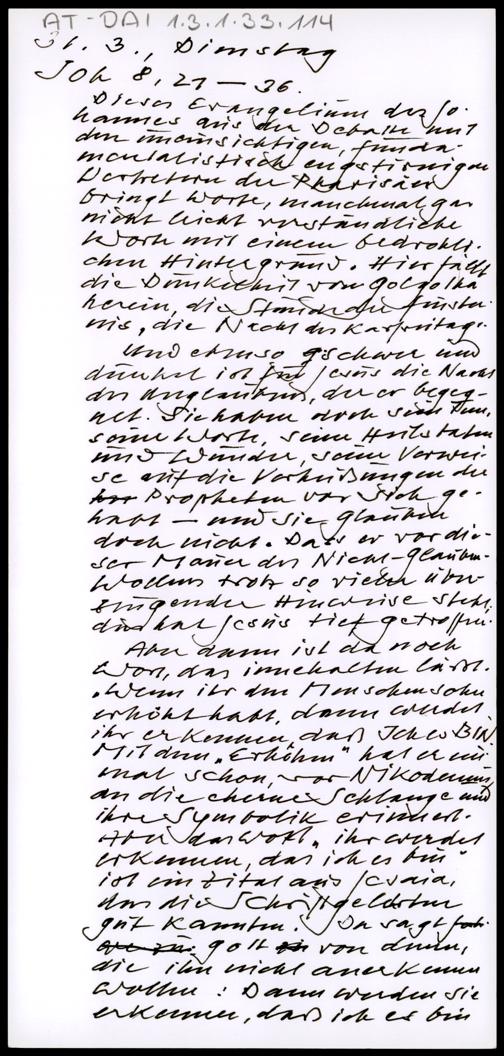 AT-DAI 1.3.1.33.114
31. 3., Dienstag
Joh 8, 21 – 36.
Dieses Evangelium des Jo-
hannes aus der Debatte mit
den uneinsichtigen, funda-
mentalistisch engstirnigen
Vertretern der Pharisäer
bringt Worte, manchmal gar
nicht leicht verständliche
Worte mit einem bedrohli-
chen Hintergrund. Hier fällt
die Dunkelheit von Golgotha
herein, die Stunde der Finster-
nis, die Nacht des Karfreitags.
Und ebenso schwer und
dunkel ist für Jesus die Nacht
des Unglaubens, der er begeg-
net. Sie haben doch sein Tun,
seine Worte, seine Heilstaten
und Wunder, seine Verwei-
se auf die Verheißungen der
Propheten vor sich ge-
habt – und sie glauben
doch nicht. Dass er vor die-
ser Mauer des Nicht-Glauben-
Wollens trotz so vieler über-
zeugender Hinweise steht,
das hat Jesus tief getroffen.
Aber dann ist da noch
Wort, das innehalten lässt.
„Wenn ihr den Menschensohn
erhöht habt, dann werdet
ihr erkennen, daß Ich es BIN.
Mit dem „Erhöhen" hat er ein-
mal schon, vor Nikodemus,
an die eherne Schlange und
ihre Symbolik erinnert.
Aber das Wort „ihr werdet
erkennen, das ich es bin"
ist ein Zitat aus Jesaia,
das die Schriftgelehrten
gut kannten. Da sagt
Gott von denen,
die ihn nicht anerkennen
wollen: Dann werden sie
erkennen, daß ich es bin